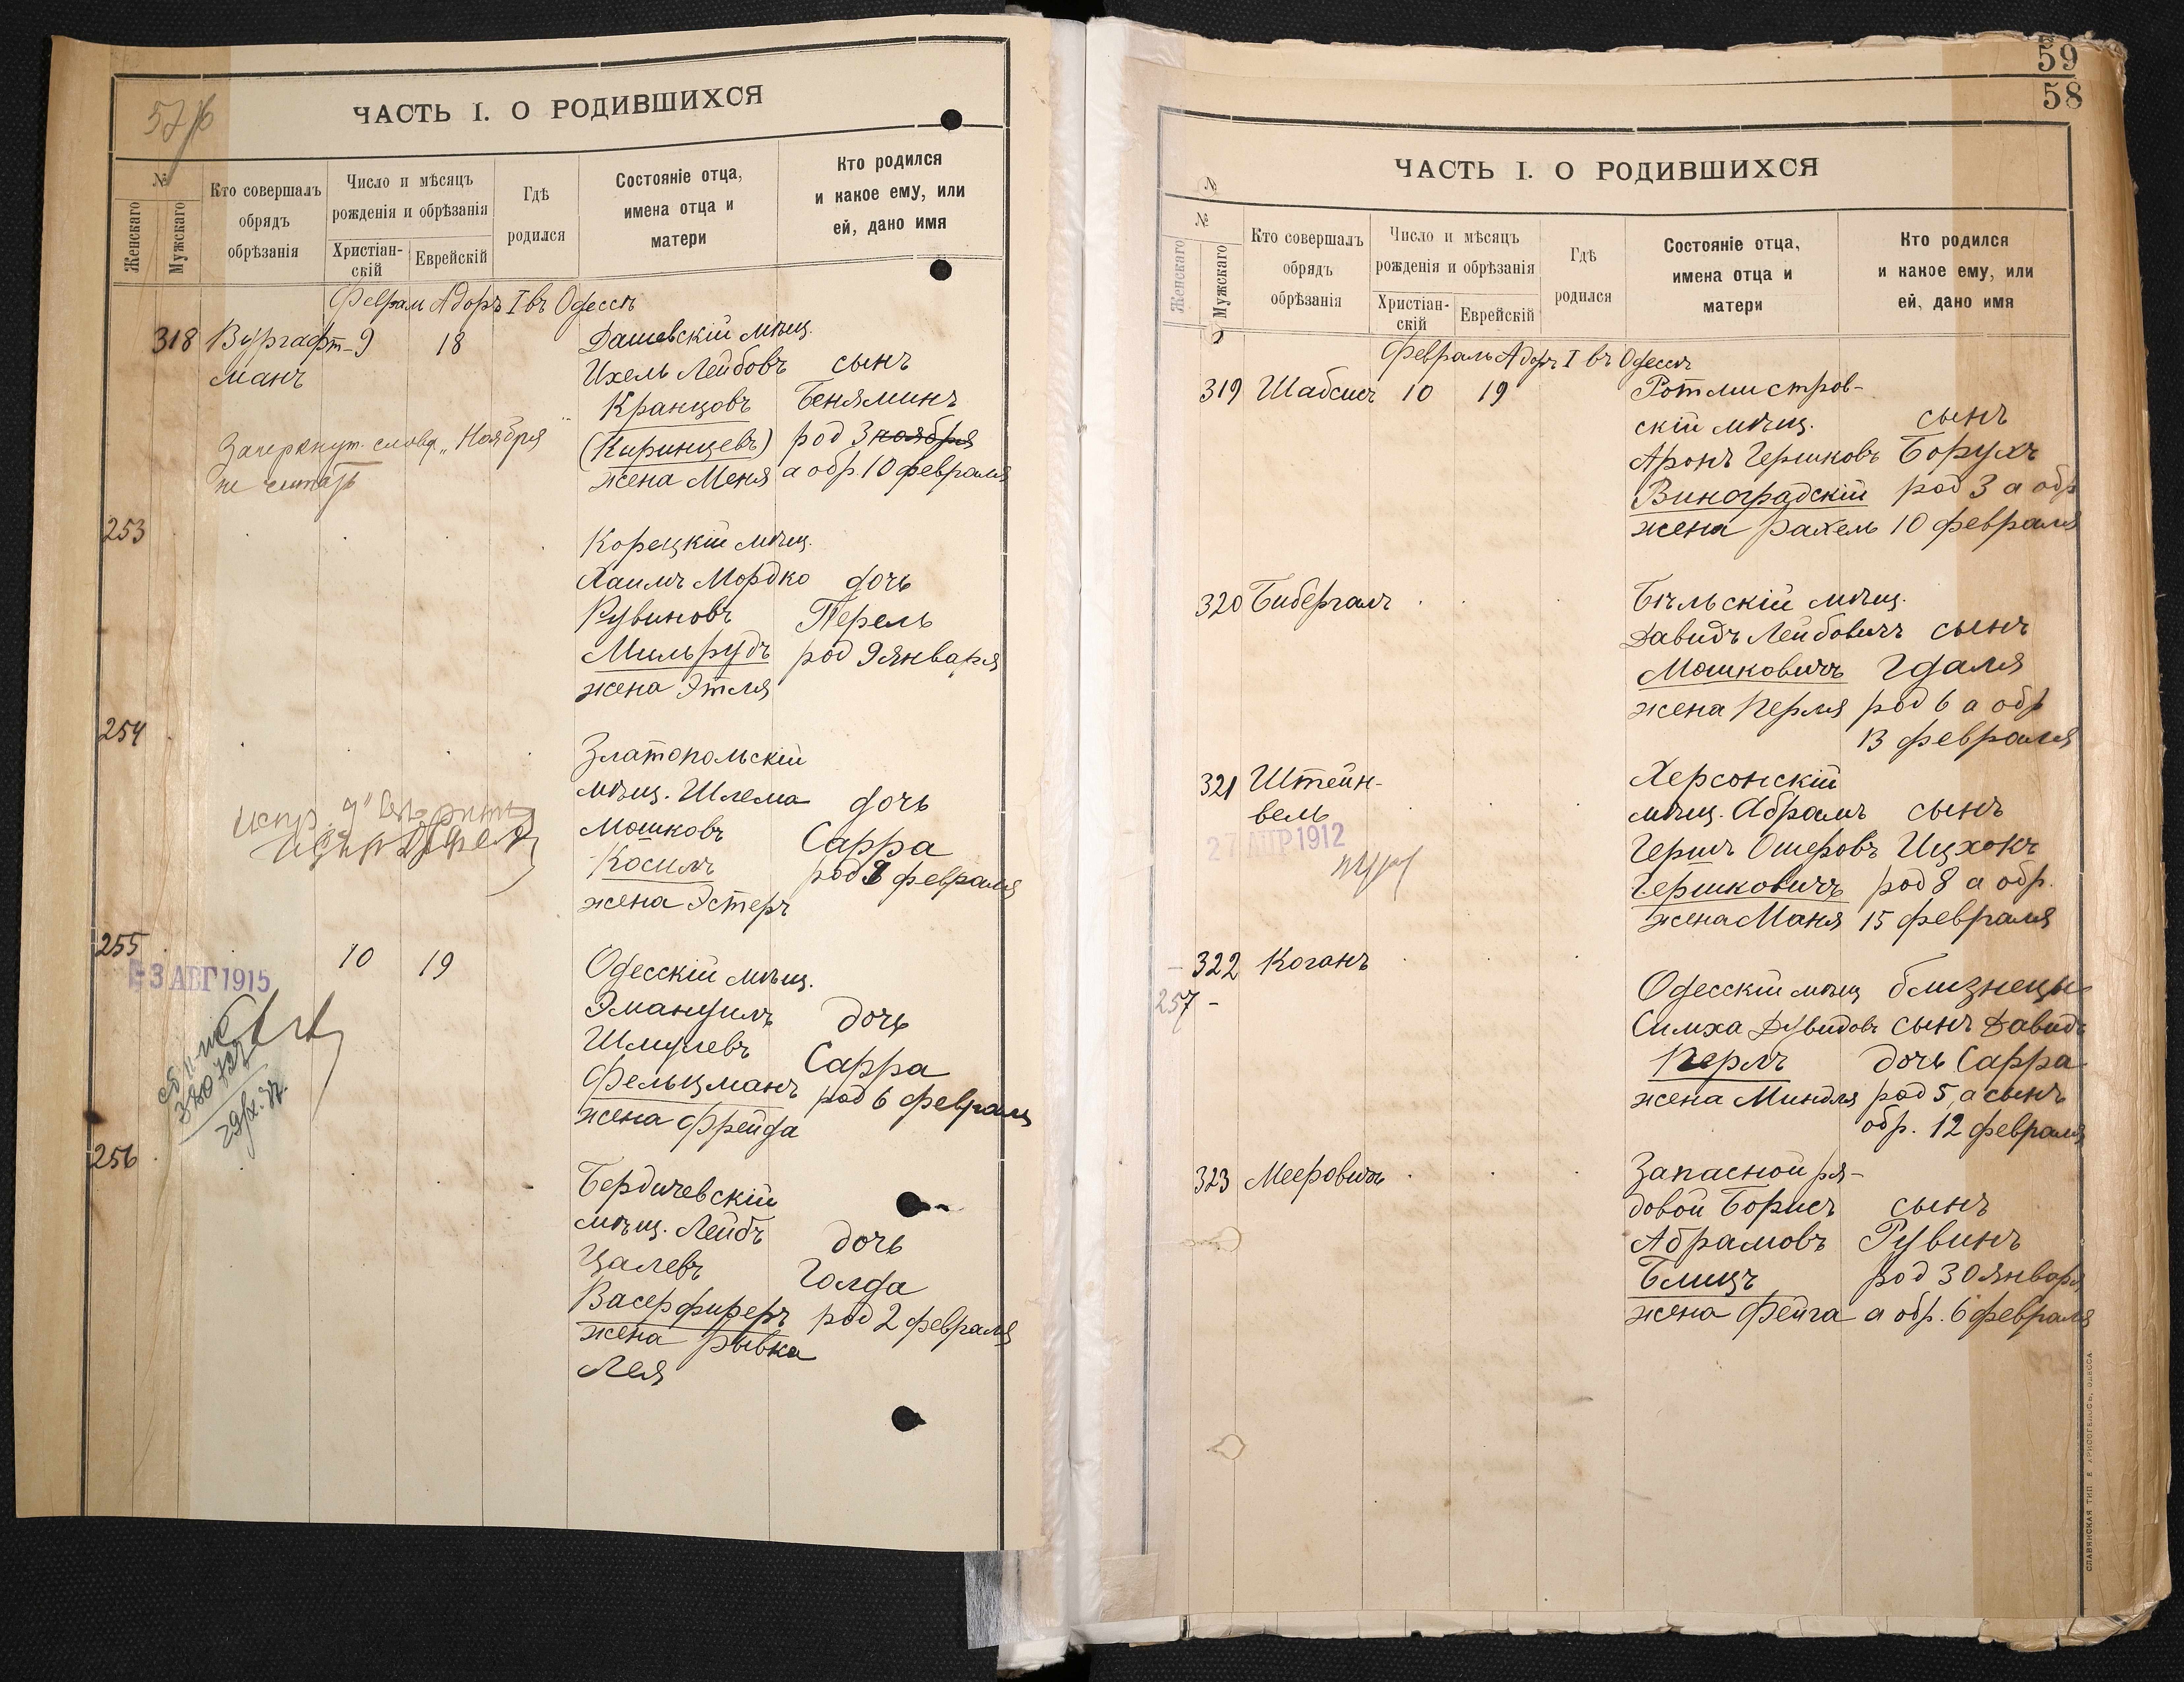 ЧАСТЬ I. О РОДИВШИХСЯ
№
Женскаго
Мужскаго
Кто совершалъ обрядъ обрѣзанія
Число и мѣсяцъ рожденія и обрѣзанія
Христіан-скій
Еврейскій
Гдѣ родился
Состояніе отца, имена отца и матери
Кто родился и какое ему, или ей, дано имя
Феврал Адоръ I въ Одессѣ
318 Вургафт- 9 18 Дашевскій мѣщ.
манъ Ихель Лейбовъ сынъ
Кранцовъ Беняминъ
(Киринцевъ) род 3 ноября
жена Меня а обр. 10 февраля
Зачеркнут. слово „Ноября
не считать
253 Корецкій мѣщ.
Хаимъ Мордко дочь
Рувиновъ Перель
Мильрудъ род 9 января
жена Этля
254 Златопольскій
мѣщ. Шлема дочь
Мошковъ Сарра
Косимъ род 8 февраля
жена Эстеръ
255 10 19 Одесскій мѣщ.
- 3 АВГ 1915
Эмануилъ дочь
Шмулевъ Сарра
Фельцманъ род 6 февраля
жена Фрейда
256 Бердичевскій
мѣщ. Лейбъ дочь
Цалевъ Голда
Васерфиреръ род 2 февраля
жена Рывка
Лея
59
58
ЧАСТЬ I. О РОДИВШИХСЯ
№
№
Женскаго
Мужскаго
Кто совершалъ обрядъ обрѣзанія
Число и мѣсяцъ рожденія и обрѣзанія
Христіан-скій
Еврейскій
Гдѣ родился
Состояніе отца, имена отца и матери
Кто родился и какое ему, или ей, дано имя
Февраль Адоръ I въ Одессѣ
319 Шабсисъ 10 19 Ротмистров-
скій мѣщ. сынъ
Аронъ Гершковъ Борухъ
Виноградскій род 3 а обр
жена Рахель 10 февраля
320 Бибергалъ Бѣльскій мѣщ.
Давидъ Лейбовичъ сынъ
Мошковичъ Гдаля
жена Перля род 6 а обр
13 февраля
321 Штейн- Херсонскій
вель мѣщ. Абрамъ сынъ
27 АПР 1912
Гершъ Ошеровъ Ицхокъ
Гершковичъ род 8 а обр.
жена Маня 15 февраля
322 Коганъ
257 - Одесскій мѣщ близнецы
Симха Дувидовъ сынъ Давидъ
Перлъ дочь Сарра
жена Миндля род 5, а сынъ
обр. 12 февраля
323 Мееровичъ Запасной ря-
довой Борисъ сынъ
Абрамовъ Рувинъ
Блицъ род 30 января
жена Фейга а обр. 6 февраля